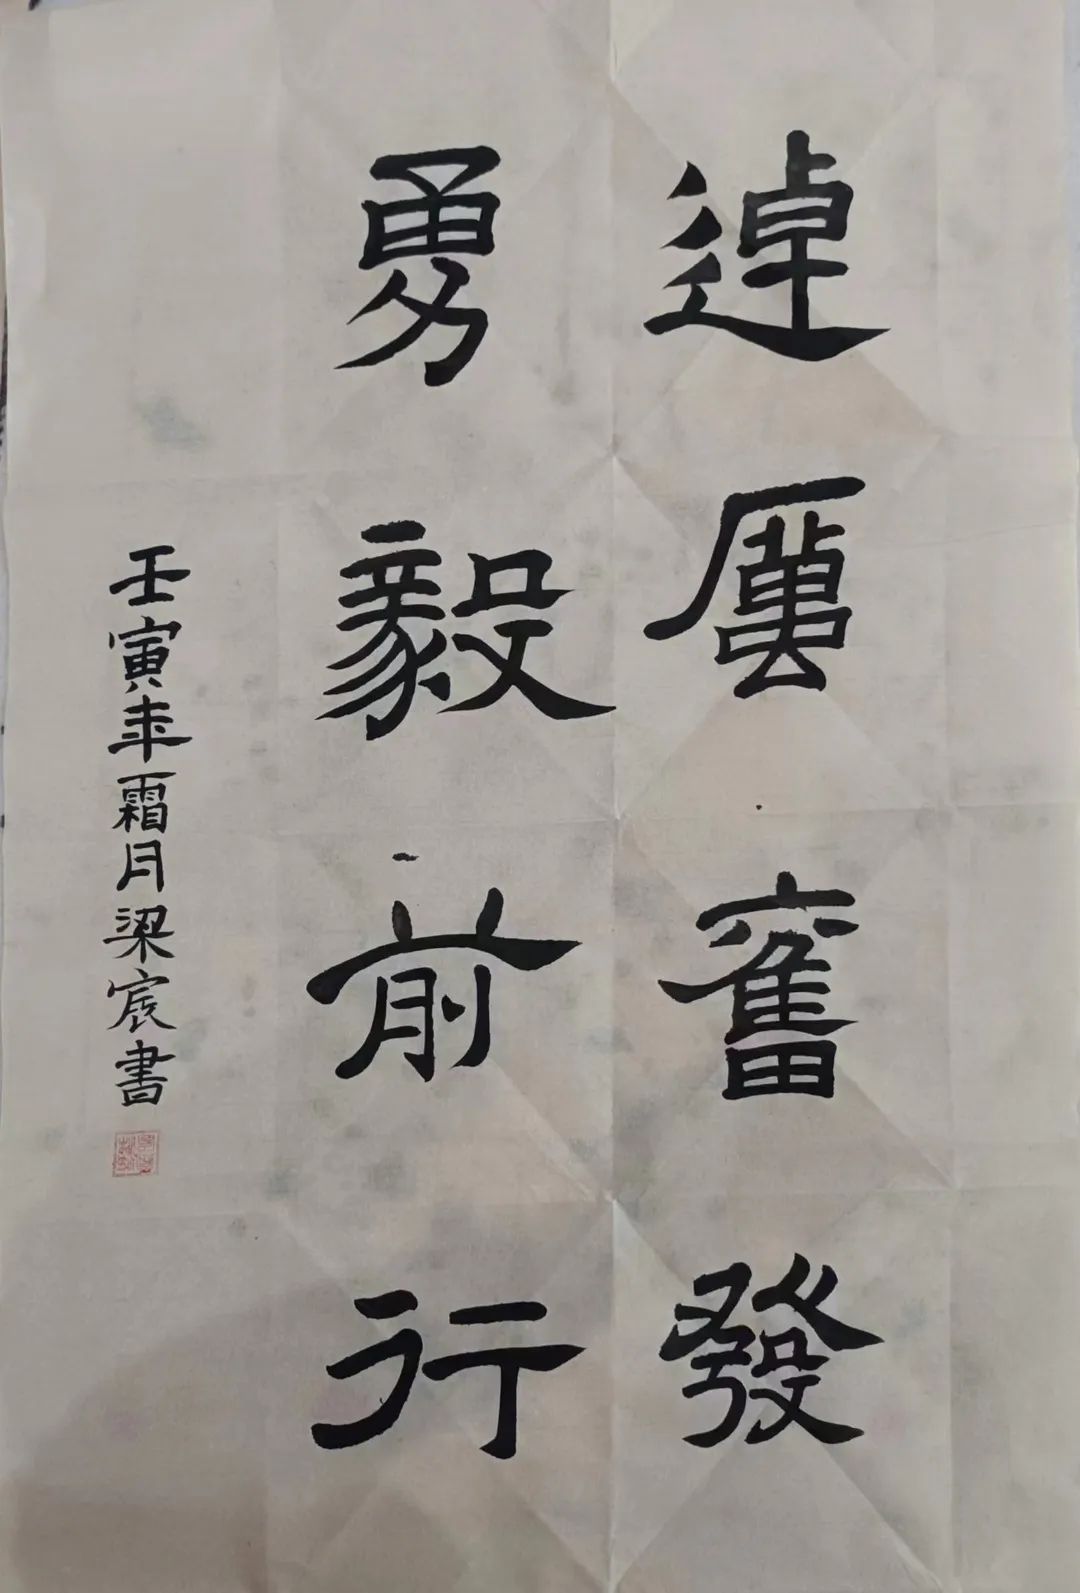 踔厲奮發
勇毅前行
壬寅年霜月梁宸書